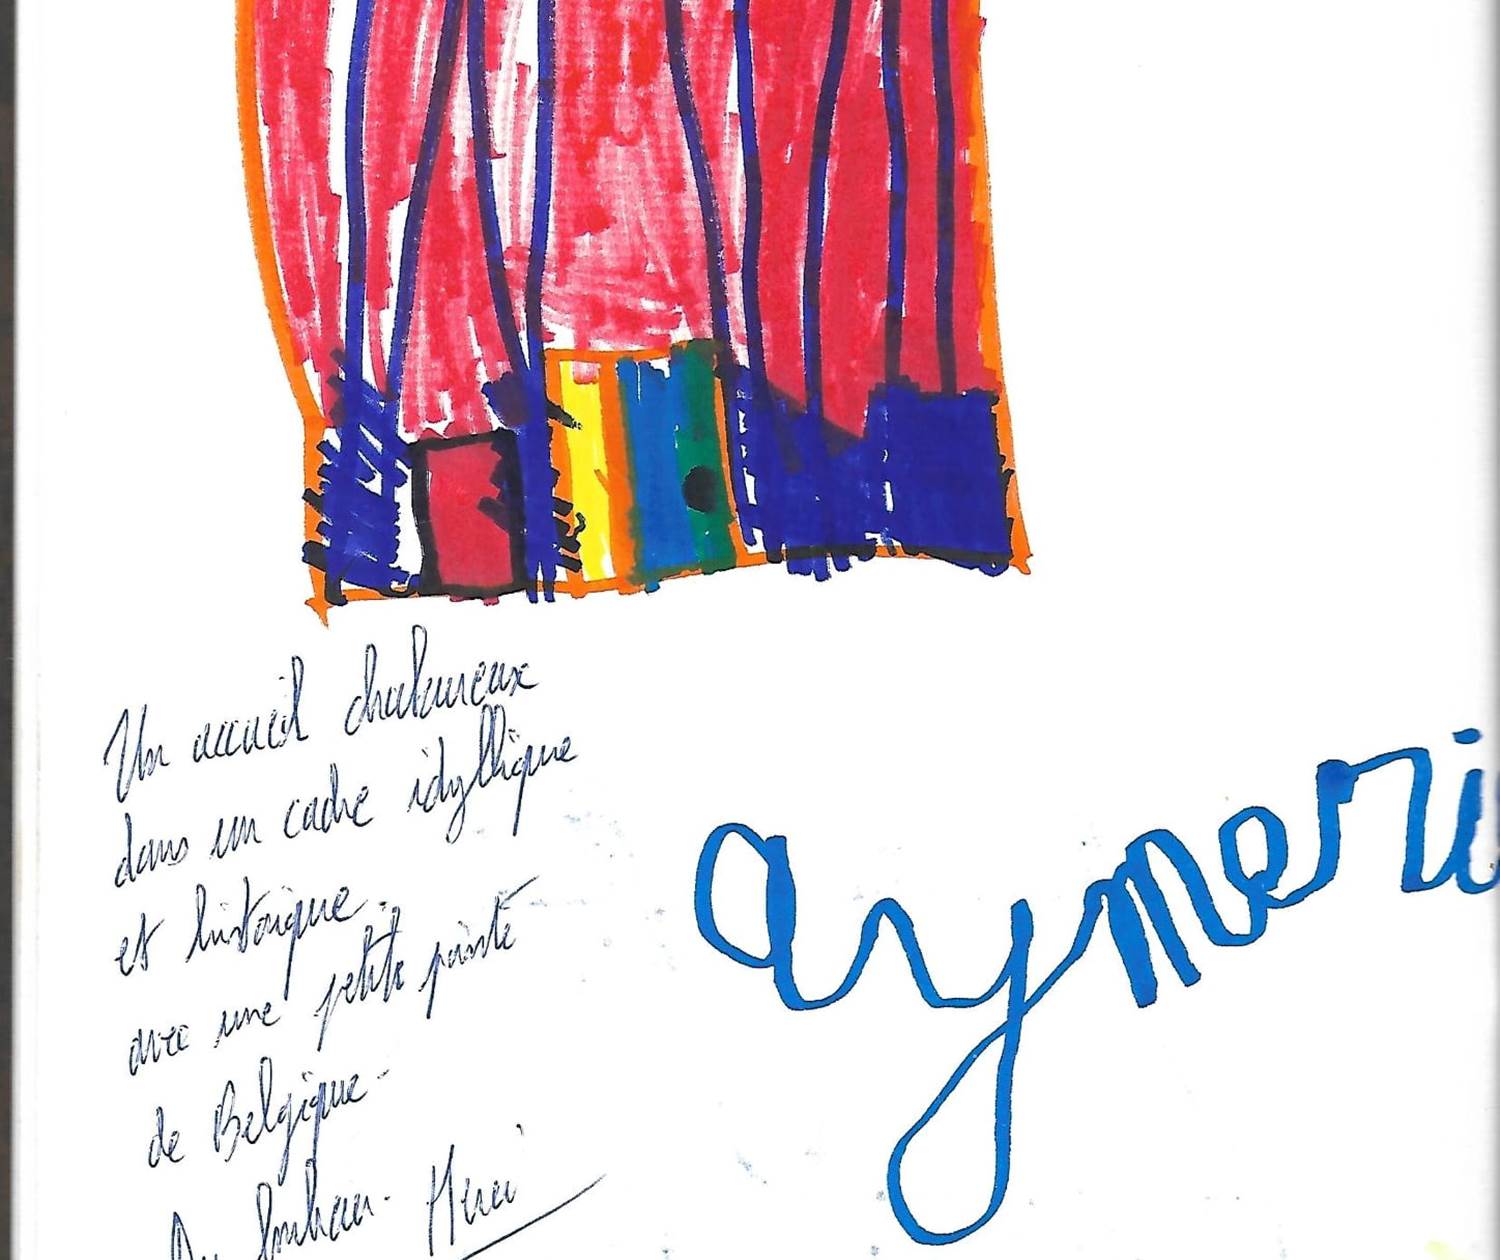 Un accueil chaleureux
dans un cadre idyllique
et historique.
avec une petite pointe
de Belgique -
Du bonheur - Merci
aymeri